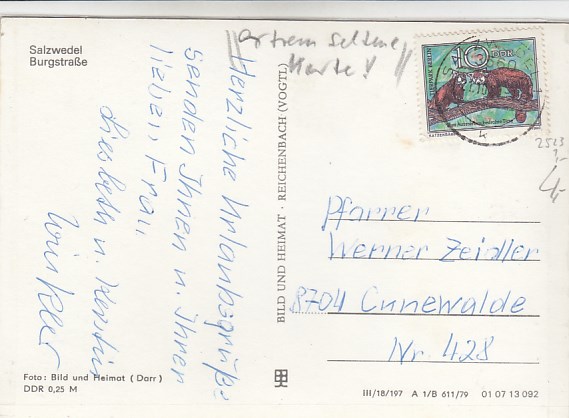 Salzwedel
Burgstraße
extrem seltene
Karte!
Herzliche Urlaubsgrüße
senden Ihnen u. Ihrer
lieben Frau
Liesbeth u. Kerstin
Winkler
10 DDR
BILD UND HEIMAT · REICHENBACH (VOGTL)
2523
4,-
Pfarrer
Werner Zeidler
8704 Cunewalde
Nr. 428
Foto: Bild und Heimat (Darr)
DDR 0,25 M
III/18/197 A 1/B 611/79 01 07 13 092